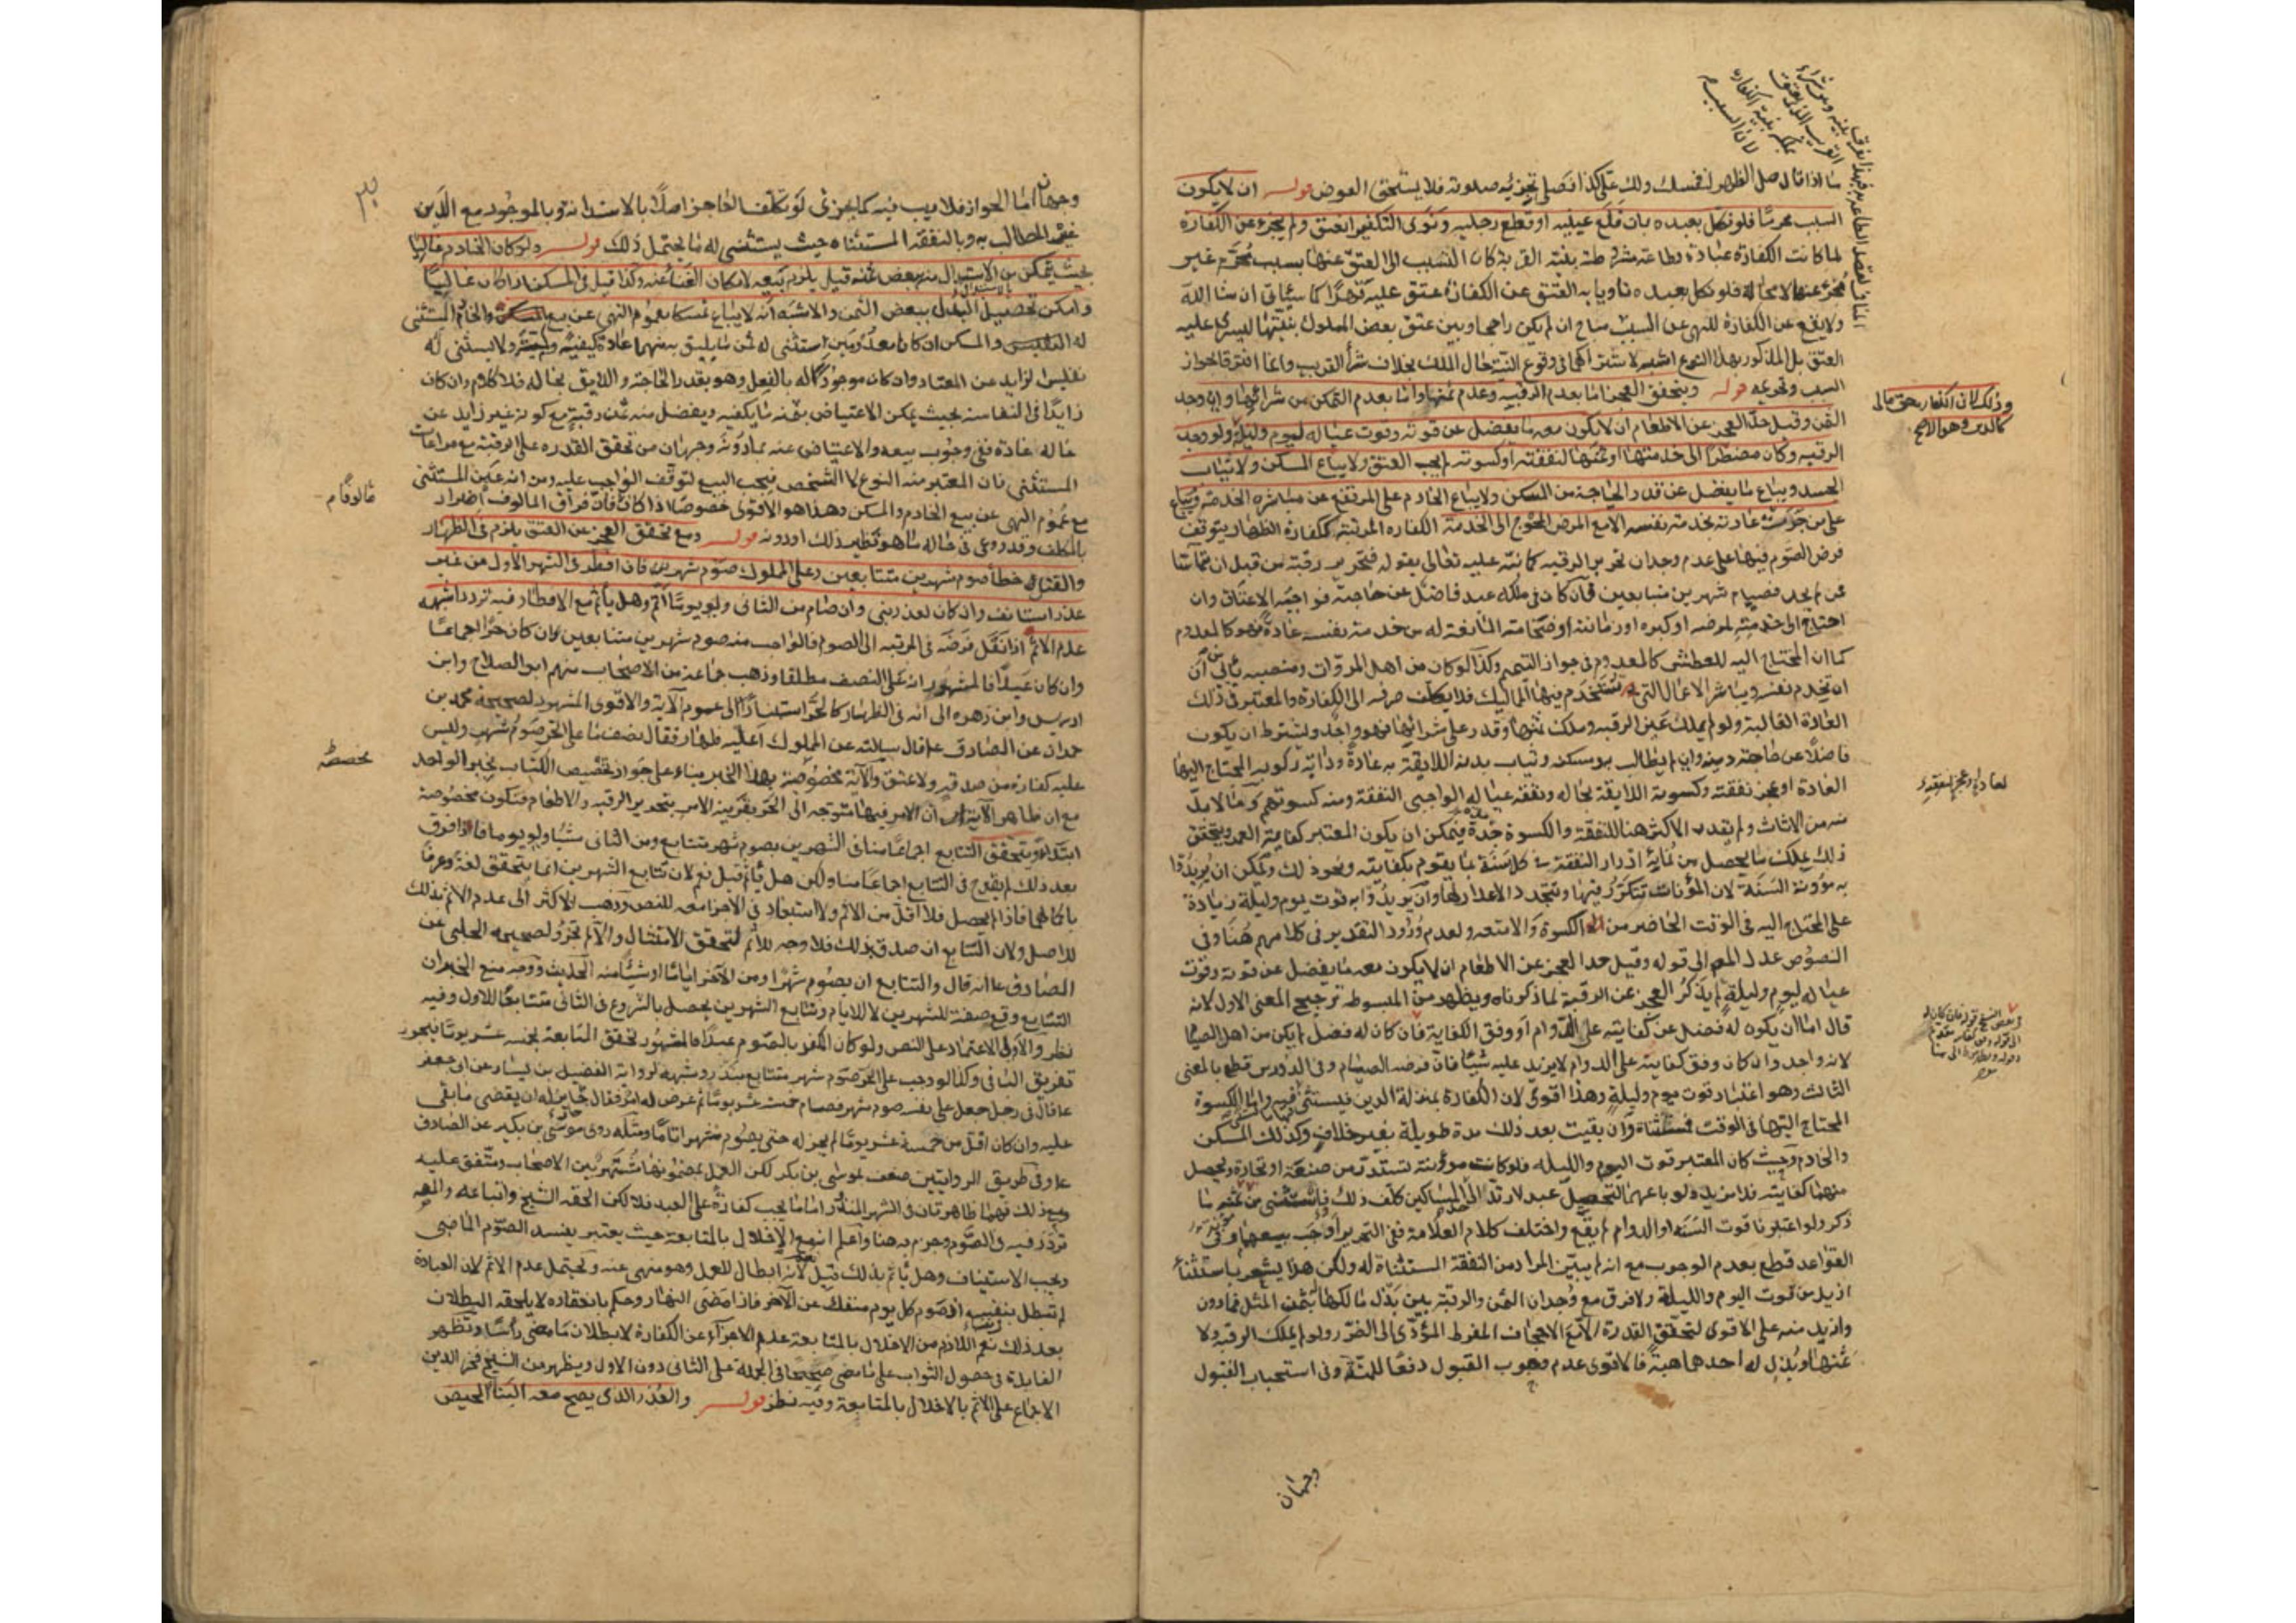 ما اذا قال صل الظهر لنفسك ولك علي كذا فصلى تجزئه صلوته فلا يستحق العوض قوله ان لا يكون
السبب محرما فلو نكل بعبده بان قلع عينيه او قطع رجليه ونوى التكفير انعتق ولم يجزء عن الكفارة
لما كانت الكفارة عبادة وطاعة مشروطة بنية القربة كان التسبب الى العتق عنها بسبب محرم غير
مجزء عنها لا محالة فلو نكل بعبده ناويا به العتق عن الكفارة عتق عليه قهرا كما سيأتي ان شا الله
ولا يقع عن الكفارة للنهي عن السبب ان لم يكن راجحا وبين عتق بعض المملوك بنيتها ليسري عليه
العتق بل المذكور بهذا النوع اشبه لاشتراكهما في وقوع النية حال الملك بخلاف شرأ القريب وانما افترقا بجواز
السبب وتحريمه قوله ويتحقق العجز اما بعدم الرقبه وعدم ثمنها واما بعدم التمكن من شرائها وان وجد
الثمن وقيل حد العجز عن الاطعام ان لا يكون معه ما يفضل عن قوته وقوت عياله ليوم وليلة ولو وجد
الرقبه وكان مضطرا الى خدمتها او ثمنها لنفقته او كسوته لم يجب العتق ولا يباع المسكن ولا ثياب
الجسد ويباع ما يفضل عن قدر الحاجة من المسكن ولا يباع الخادم على المرتفع عن مباشرة الخدمة ويباع
على من جرت عادته بخدمة نفسه الا مع المرض المحوج الى الخدمة الكفاره المرتبة ككفارة الظهار يتوقف
فرض الصوم فيها على عدم وجدان تحرير الرقبه كما نبه عليه تعالى بقوله فتحرير رقبة من قبل ان يتماسا
فمن لم يجد فصيام شهرين متتابعين فان كان في ملكه عبد فاضل عن حاجته فواجبه الاعتاق وان
احتاج الى خدمته لمرضه او كبره او زمانته او ضخامته المانعة له من خدمة نفسه عادة فهو كالمعدوم
كما ان المحتاج اليه للعطش كالمعدوم في جواز التيمم وكذا لو كان من اهل المروات ومنصبه يأبى
ان يخدم نفسه ويباشر الاعمال التي تستخدم فيها المماليك فلا يكلف صرفه الى الكفارة والمعتبر في ذلك
العادة الغالبة ولو لم يملك عين الرقبه وملك ثمنها وقدر على شرائها فهو واجد ويشترط ان يكون
فاضلا عن حاجته دينه وان لم يطالب به ومسكنه وثياب بدنه اللايقة به عادة ودابة ركوبه المحتاج اليها
العادة او عجز نفقته وكسوته اللايقة بحاله ونفقة عياله الواجبي النفقة ومنه كسوتهم وما لا بد
منه من الاثاث ولم يقدر الاكثر هنا للنفقة والكسوة مدة فيمكن ان يكون المعتبر كفاية العمر ويتحقق
ذلك بملك ما يحصل من نمايه ادرار النفقة في كل سنة بما يقوم بكفايته ونحو ذلك ويمكن ان يريدوا
به مؤونة السنة لان المؤنات تتكرر فيها ويتجدد الاعداد لها وان يريدوا به قوت يوم وليلة زيادة
على المحتاج اليه في الوقت الحاضر من الكسوة والامتعه ولعدم ورود التقدير في كلامهم هنا وفي
النصوص عدل المص الى قوله وقيل حد العجز عن الاطعام ان لا يكون معه ما يفضل عن قوته وقوت
عياله ليوم وليلة لم يذكر العجز عن الرقبة لما ذكرناه ويظهر من المبسوط ترجيح المعنى الاول لانه
قال اما ان يكون له فضل عن كفايته على الدوام او وفق الكفاية فان كان له فضل لم يكن من اهل الصيام
لانه واجد وان كان وفق كفايته على الدوام لا يزيد عليه شيئا فان فرضه الصيام وفي الدروس قطع بالمعنى
الثالث وهو اعتبار قوت يوم وليلة وهذا اقوى لان الكفارة بمنزلة الدين فيستثنى فيه واما الكسوة
المحتاج اليها في الوقت فمستثناة وان بقيت بعد ذلك مدة طويلة بغير خلاف وكذلك المسكن
والخادم وحيث كان المعتبر قوت اليوم والليله فلو كانت مؤنته تستدر من صنعة او تجارة ويحصل
منهما كفايته فلا مزيد ولو باعهما لتحصيل عبد لارتد الى المساكين كلف ذلك من ثمنه ما
ذكر ولو اعتبرنا قوت السنة او الدوام لم يقع واختلف كلام العلامة ففي التحرير اوجب بيعهما وفي
القواعد قطع بعدم الوجوب مع انه لم يبين المراد من النفقة المستثناة له ولكن هذا يشعر باستثناء
ازيد من قوت اليوم والليلة ولا فرق مع وجدان الثمن والرقبة بين بذل مالكها له بثمن المثل فما دون
وازيد منه على الاقوى لتحقق القدرة الا مع الاجحاف المفرط المؤدي الى الضرر ولو لم يملك الرقبه ولا
ثمنها وبذل له احدهما هبة فالاقوى عدم وجوب القبول دفعا للمنة وفي استحباب القبول
وجهان
وذلك لان الكفاره حق مالى
كالدين وهو الاصح
وجهان اما الجواز فلا ريب فيه كما يجزى لو تكلف العاجز اصلا بالاستدانة وبالموجود مع الدين
غير المطالب به وبالنفقة المستثناه حيث يستثنى له ما يحتمل ذلك قوله ولو كان الخادم غاليا
بحيث يتمكن من الاستبدال منه ببعض ثمنه قيل يلزم بيعه لامكان الغنا عنه وكذا قيل في المسكن اذا كان غاليا
وامكن تحصيل البدل ببعض الثمن والاشبه انه لا يباع تمسكا بعموم النهي عن بيع المسكن والخادم المستثنى
له والمسكن ان كانا معدومين استثنى له ثمن ما يليق به منهما عادة كيفية ولا يستثنى له
نفليس لزايد عن المعتاد وان كان موجودا له بالفعل وهو بقدر الحاجة واللايق بحاله فلا كلام وان كان
زايدا في النفاسة بحيث يمكن الاعتياض بثمنه ما يكفيه ويفضل منه ثمن رقبة مع كونه غير زايد عن
حاله عادة ففي وجوب بيعه والاعتياض عنه بما دونه وجهان من تحقق القدره على الرقبة مع مراعات
المستثنى فان المعتبر منه النوع لا الشخص فيجب البيع لتوقف الواجب عليه ومن انه عين المستثنى
مع عموم النهي عن بيع الخادم والمسكن وهذا هو الاقوى خصوصا اذا كان فان فراق المالوف اضرار
بالمكلف وقد روعي في حاله ما هو نظير ذلك او دونه قوله ومع تحقق العجز عن العتق يلزم في الظهار
والقتل خطأ صوم شهرين متتابعين وعلى المملوك صوم شهر فان افطر في الشهر الاول من غير
عذر استانف وان كان لعذر بنى وان صام من الثاني ولو يوما اتم وهل يأثم مع الافطار فيه تردد اشبهه
عدم الاثم اذا انتقل فرضه في المرتبه الى الصوم فالواجب منه صوم شهرين متتابعين ان كان حرا اجماعا
وان كان عبدا فالمشهور انه على النصف مطلقا وذهب جماعة من الاصحاب منهم ابو الصلاح وابن
ادريس وابن زهره الى انه في الظهار كالحر استنادا الى عموم الآية والاقوى المشهور لصحيحة محمد بن
حمران عن الصادق ع قال سالته عن المملوك اعليه ظهار فقال نصف ما على الحر صوم شهر وليس
عليه كفارة من صدقة ولا عتق والآية مخصوصة بهذا الخبر بناء على جواز تخصيص الكتاب بخبر الواحد
مع ان ظاهر الآية ان الامر فيها متوجه الى الحر بقرينة الامر بتحرير الرقبه والاطعام فتكون مخصوصة
ابتداء ويتحقق التتابع اجماعا منا في الشهرين بصوم شهر متتابع ومن الثاني شيئا ولو يوما فاذا فرق
بعد ذلك لم يقدح في التتابع اجماعا منا ولكن هل يأثم قيل نعم لان تتابع الشهرين انما يتحقق لغة وعرفا
باكمالهما فاذا لم يحصل فلا اقل من الاثم ولا استبعاد في الاجزا معه للنص وذهب الاكثر الى عدم الاثم بذلك
للاصل ولان التتابع ان صدق بذلك فلا وجه للاثم لتحقق الامتثال والا لم تجز ولصحيحة الحلبي عن
الصادق ع انه قال والتتابع ان يصوم شهرا ومن الآخر اياما او شيئا منه الحديث ووجه منع الخبر ان
التتابع وقع صفة للشهرين لا للايام وتتابع الشهرين يحصل بالشروع في الثاني متتابعا للاول وفيه
نظر والاولى الاعتماد على النص ولو كان المكفر بالصوم عبدا فالمشهور تحقق المتابعة بخمسة عشر يوما فيجوز
تفريق الباقي وكذا لو وجب على الحر صوم شهر متتابع بنذر وشبهه لرواية الفضيل بن يسار عن ابي جعفر
ع قال في رجل جعل على نفسه صوم شهر فصام خمسة عشر يوما ثم عرض له امر فقال جايز له ان يقضي ما بقي
عليه وان كان اقل من خمسة عشر يوما لم يجز له حتى يصوم شهرا تاما ومثله روى موسى بن بكير عن الصادق
ع وفي طريق الروايتين ضعف بموسى بن بكر لكن العمل بمضمونها مشتهر بين الاصحاب ومتفق عليه
ومع ذلك فهما ظاهرتان في الشهر المنذور اما ما يجب كفارة على العبد فلا لكن الحقه الشيخ واتباعه والمص
تردد فيه في الصوم وجزم به هنا واعلم انه مع الاخلال بالمتابعة حيث يعتبر يفسد الصوم الماضي
ويجب الاستيناف وهل يأثم بذلك قيل نعم لانه ابطال للعمل وهو منهى عنه ويحتمل عدم الاثم لان العبادة
لم تبطل بنفسها اذ صوم كل يوم منفك عن الآخر فاذا مضى النهار وحكم بانعقاده لا يلحقه البطلان
بعد ذلك نعم اللازم من الاخلال بالمتابعة عدم الاجزاء عن الكفارة لا بطلان ما مضى رأسا وتظهر
الفايدة في حصول الثواب على ما مضى صحيحا في الجملة على الثاني دون الاول ويظهر من الشيخ فخر الدين
الاجماع على الاثم بالاخلال بالمتابعة وفيه نظر قوله والعذر الذي يصح معه البنا الحيض